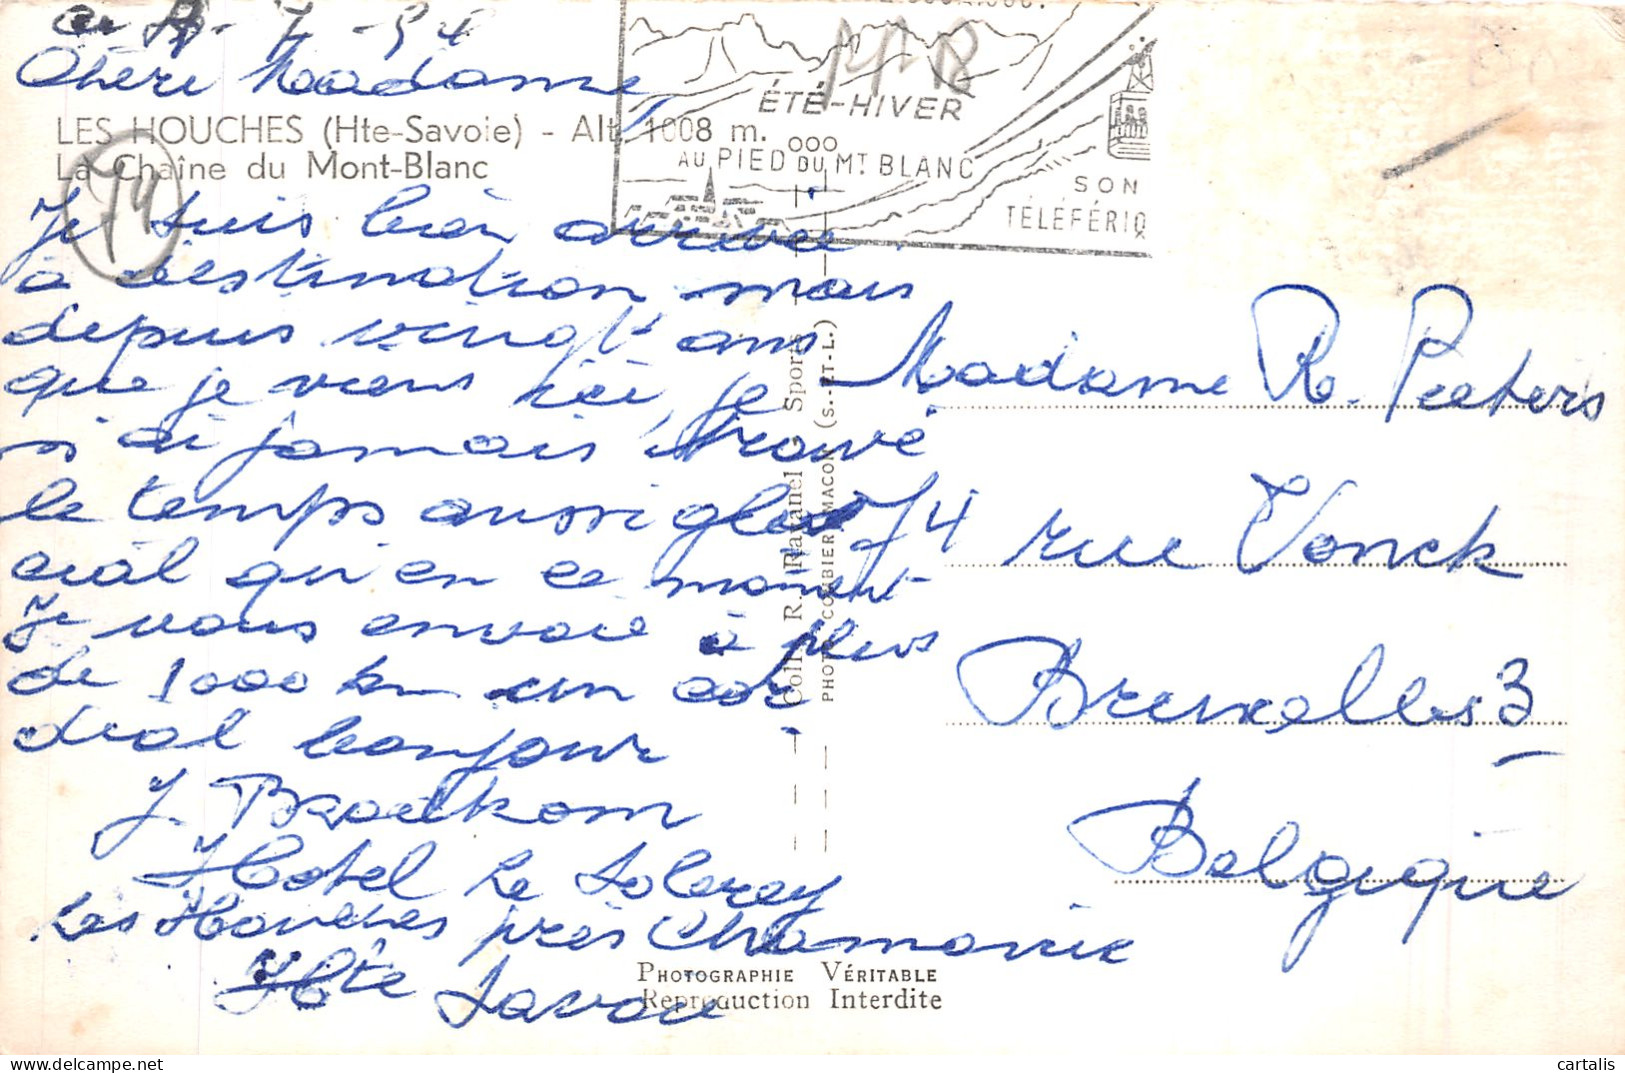 7-54
Chère Madame,
LES HOUCHES (Hte-Savoie) - Alt. 1008 m.
La Chaîne du Mont-Blanc
74
Je suis bien arrivée
à destination mais
depuis vingt ans
que je viens ici, je
n'ai jamais trouvé
le temps aussi gla
cial qu'en ce moment
Je vous envoie à plus
de 1000 km un cor
dial bonjour
J.
Hotel Le
Les Houches près Chamonix
Hte Savoie
ÉTÉ-HIVER
AU PIED DU MT BLANC
SON
TÉLÉFÉRIQ
Coll. R. Ravanel - Sports
PHOT. COMBIER MACON (S.-ET-L.)
Madame R. Peeters
74 rue Vonck
Bruxelles 3
Belgique
PHOTOGRAPHIE VÉRITABLE
Reproduction Interdite
cartalis